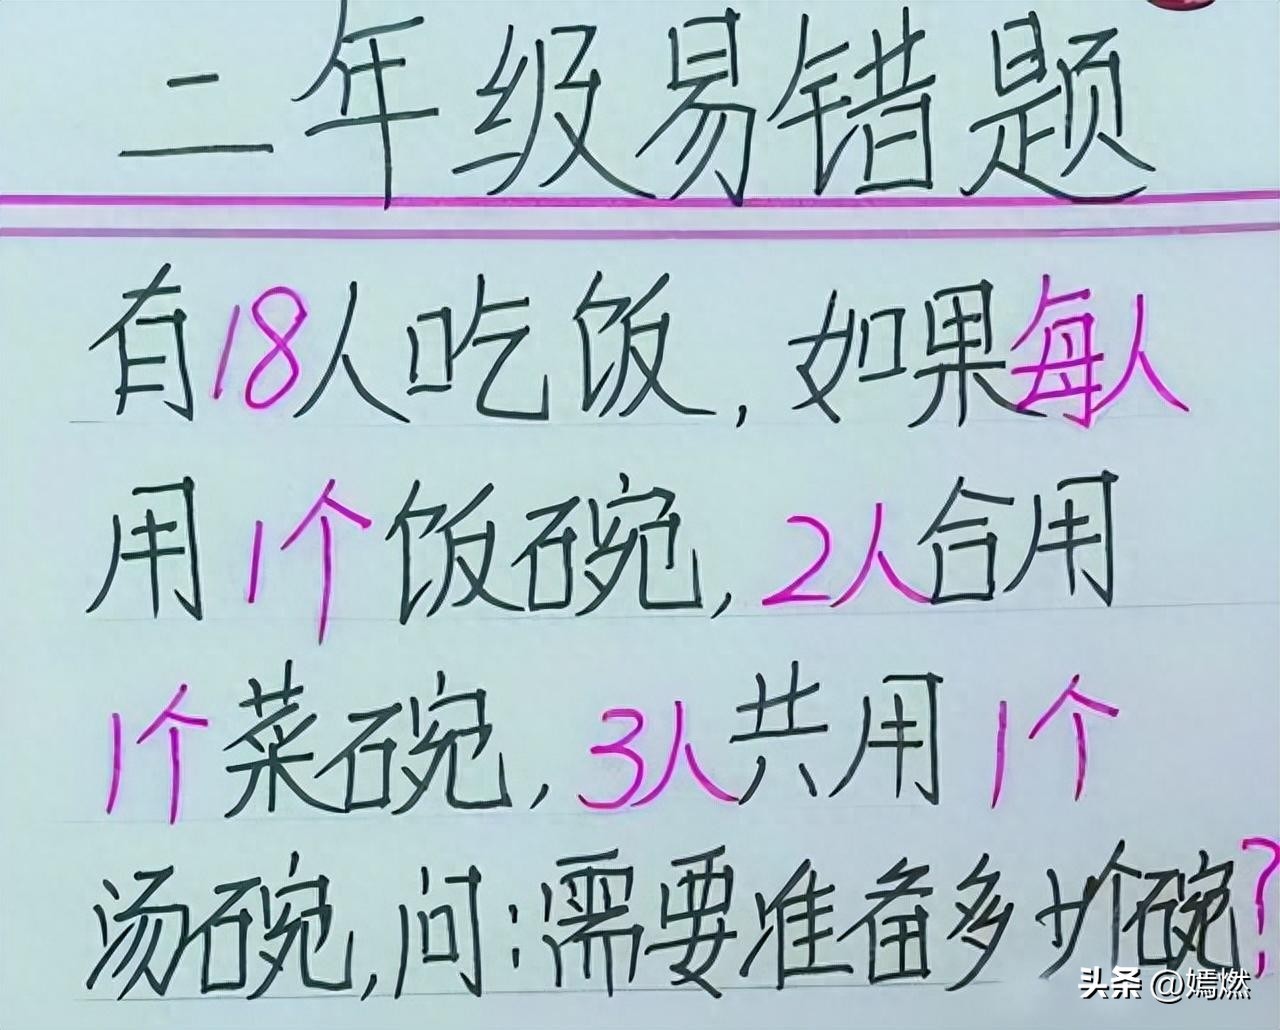 二年级易错题
有18人吃饭,如果每人
用1个饭碗,2人合用
1个菜碗,3人共用1个
汤碗,问:需要准备多少个碗?
头条 @嫣燃